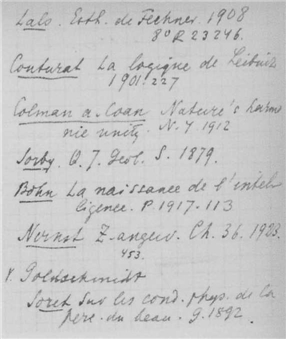 Lalo. Esth. de Fechner. 1908
8° R 23246.
Couturat La logique de Leibniz
1901. 227
Colman a. Coan Nature's harmo
nic unity. N.Y 1912
Sorby. Q. J. Geol. S. 1879.
Bohn La naissance de l'intel
ligence. P 1917. 113
Nernst Z. angew. Ch. 36. 1923.
453.
V. Goldschmidt
Soret Sur les cond. phys. de la
perc. du beau. G. 1892.